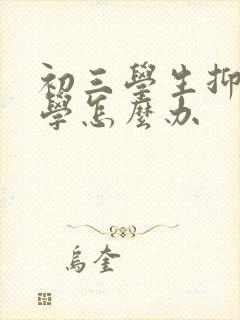 初三學生抑
學怎麼办
烏奎